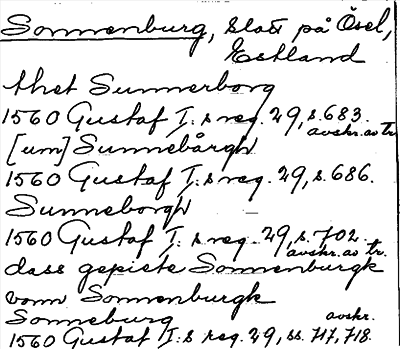 Sonnenburg, slott på Ösel,
Estland
thet Sunnerborg
1560 Gustaf I:s reg. 29, s. 683.
avskr. av tr.
[um] Sunnebårgh
1560 Gustaf I:s reg. 29, s. 686.
Sunneborgh
1560 Gustaf I:s reg. 29, s. 702.
avskr. av tr.
dass gepiete Sonnenburgk
vonn Sonnenburgk
Sonneburg avskr.
1560 Gustaf I:s reg. 29, ss. 717, 718.